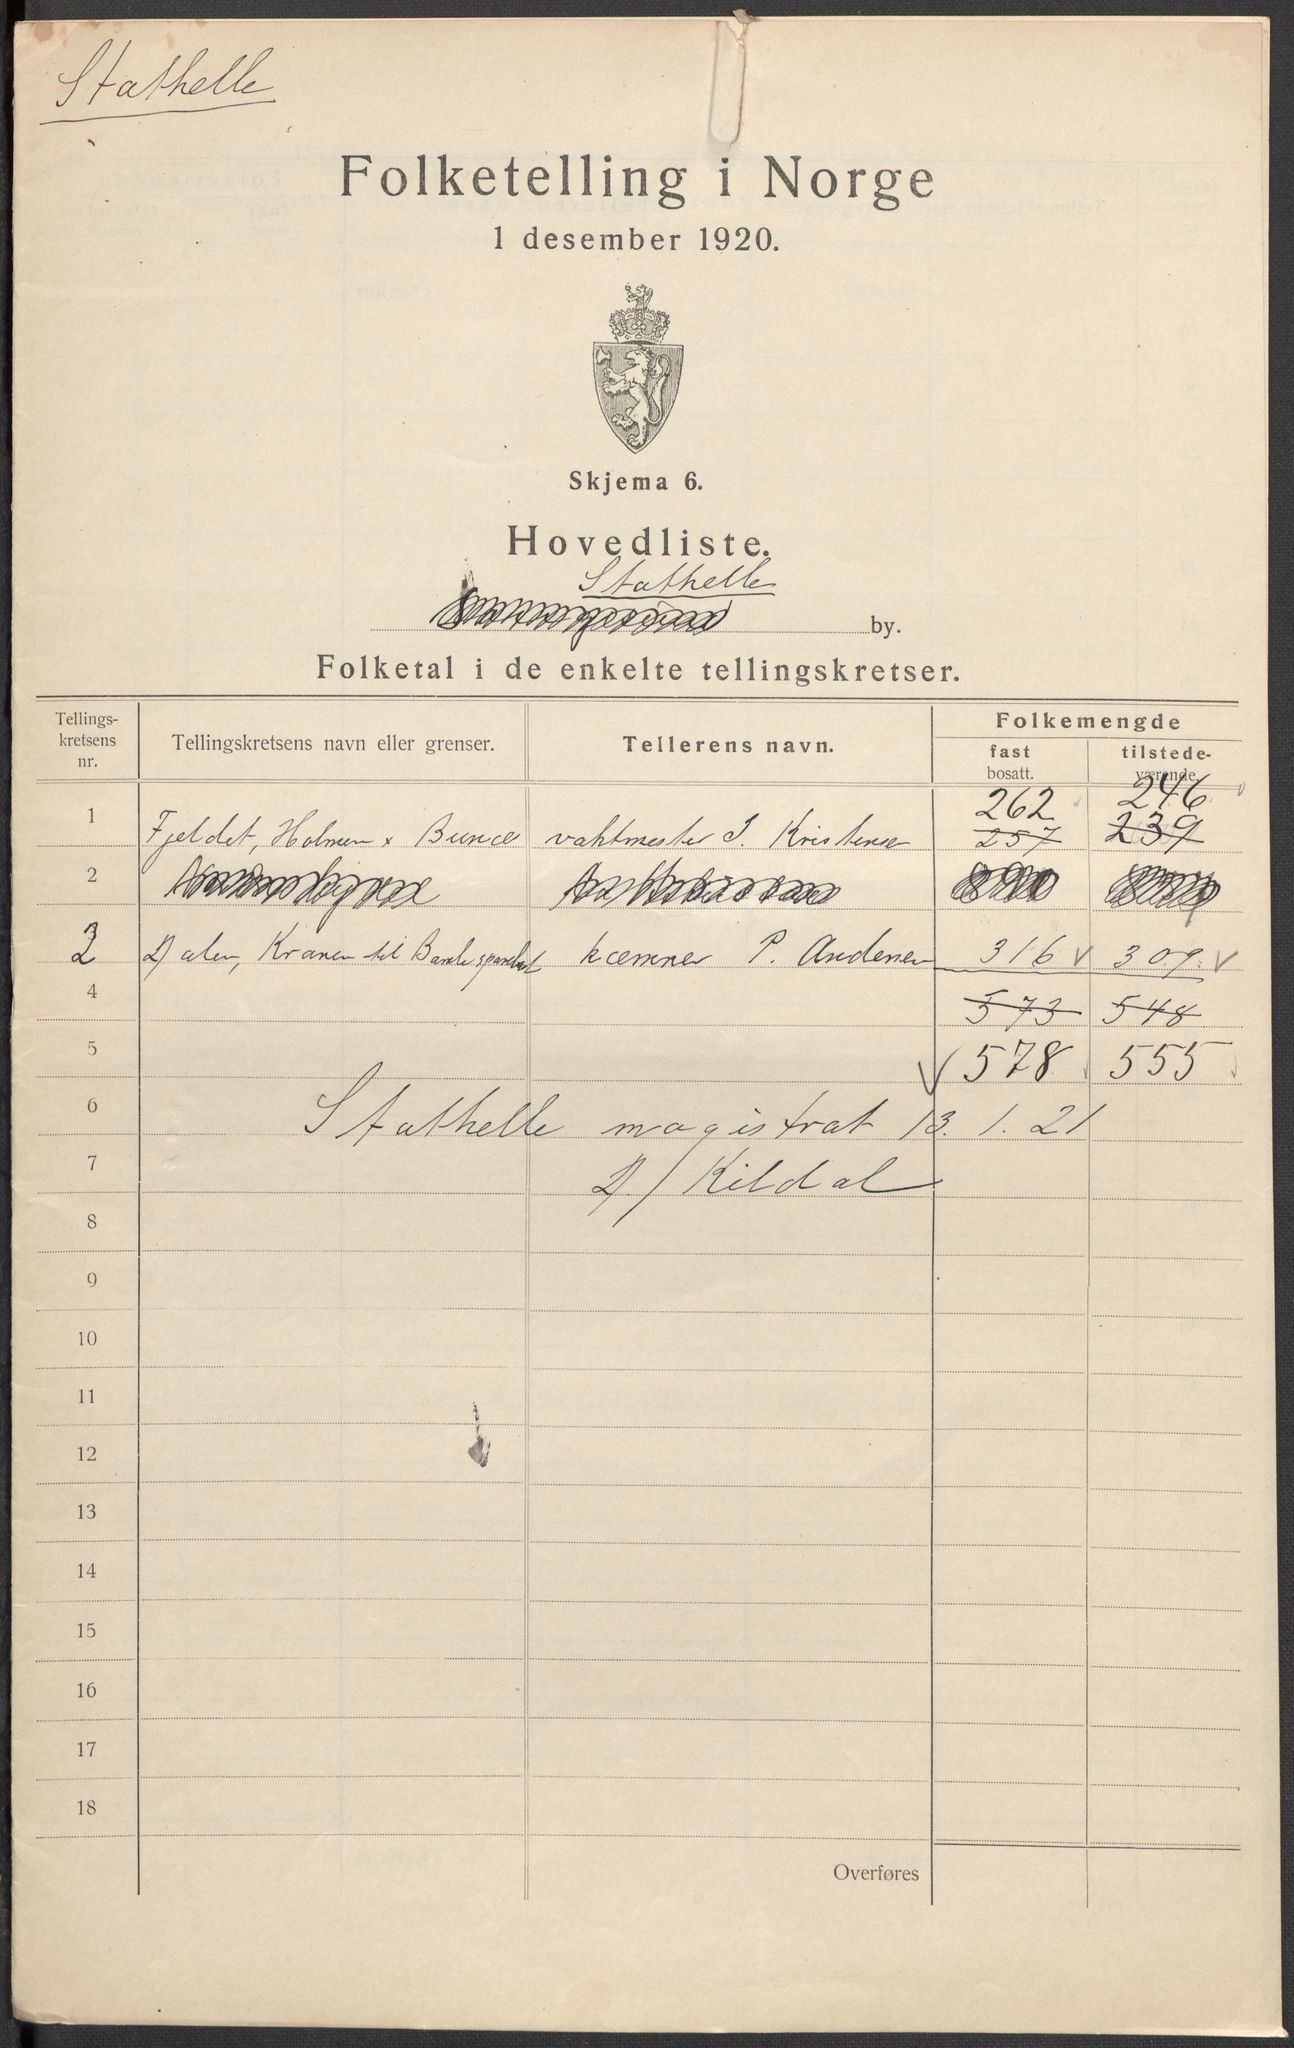 Stathelle
Folketelling i Norge
1 desember 1920.
Skjema 6.
Hovedliste.
Stathelle
by.
Folketal i de enkelte tellingskretser.
Tellings-kretsens nr. Tellingskretsens navn eller grenser. Tellerens navn. Folkemengde
fast bosatt. tilstede-værende.
262 246
1 Fjeldet, Holmen x vaktmester J. Kristensen 257 239
2
3 2 Dalen, Kranen til kæmner P. Andersen 316 309
4 573 548
5 578 555
6 Stathelle magistrat 13.1.21
7 D/ Kildal
8
9
10
11
12
13
14
15
16
17
18
Overføres